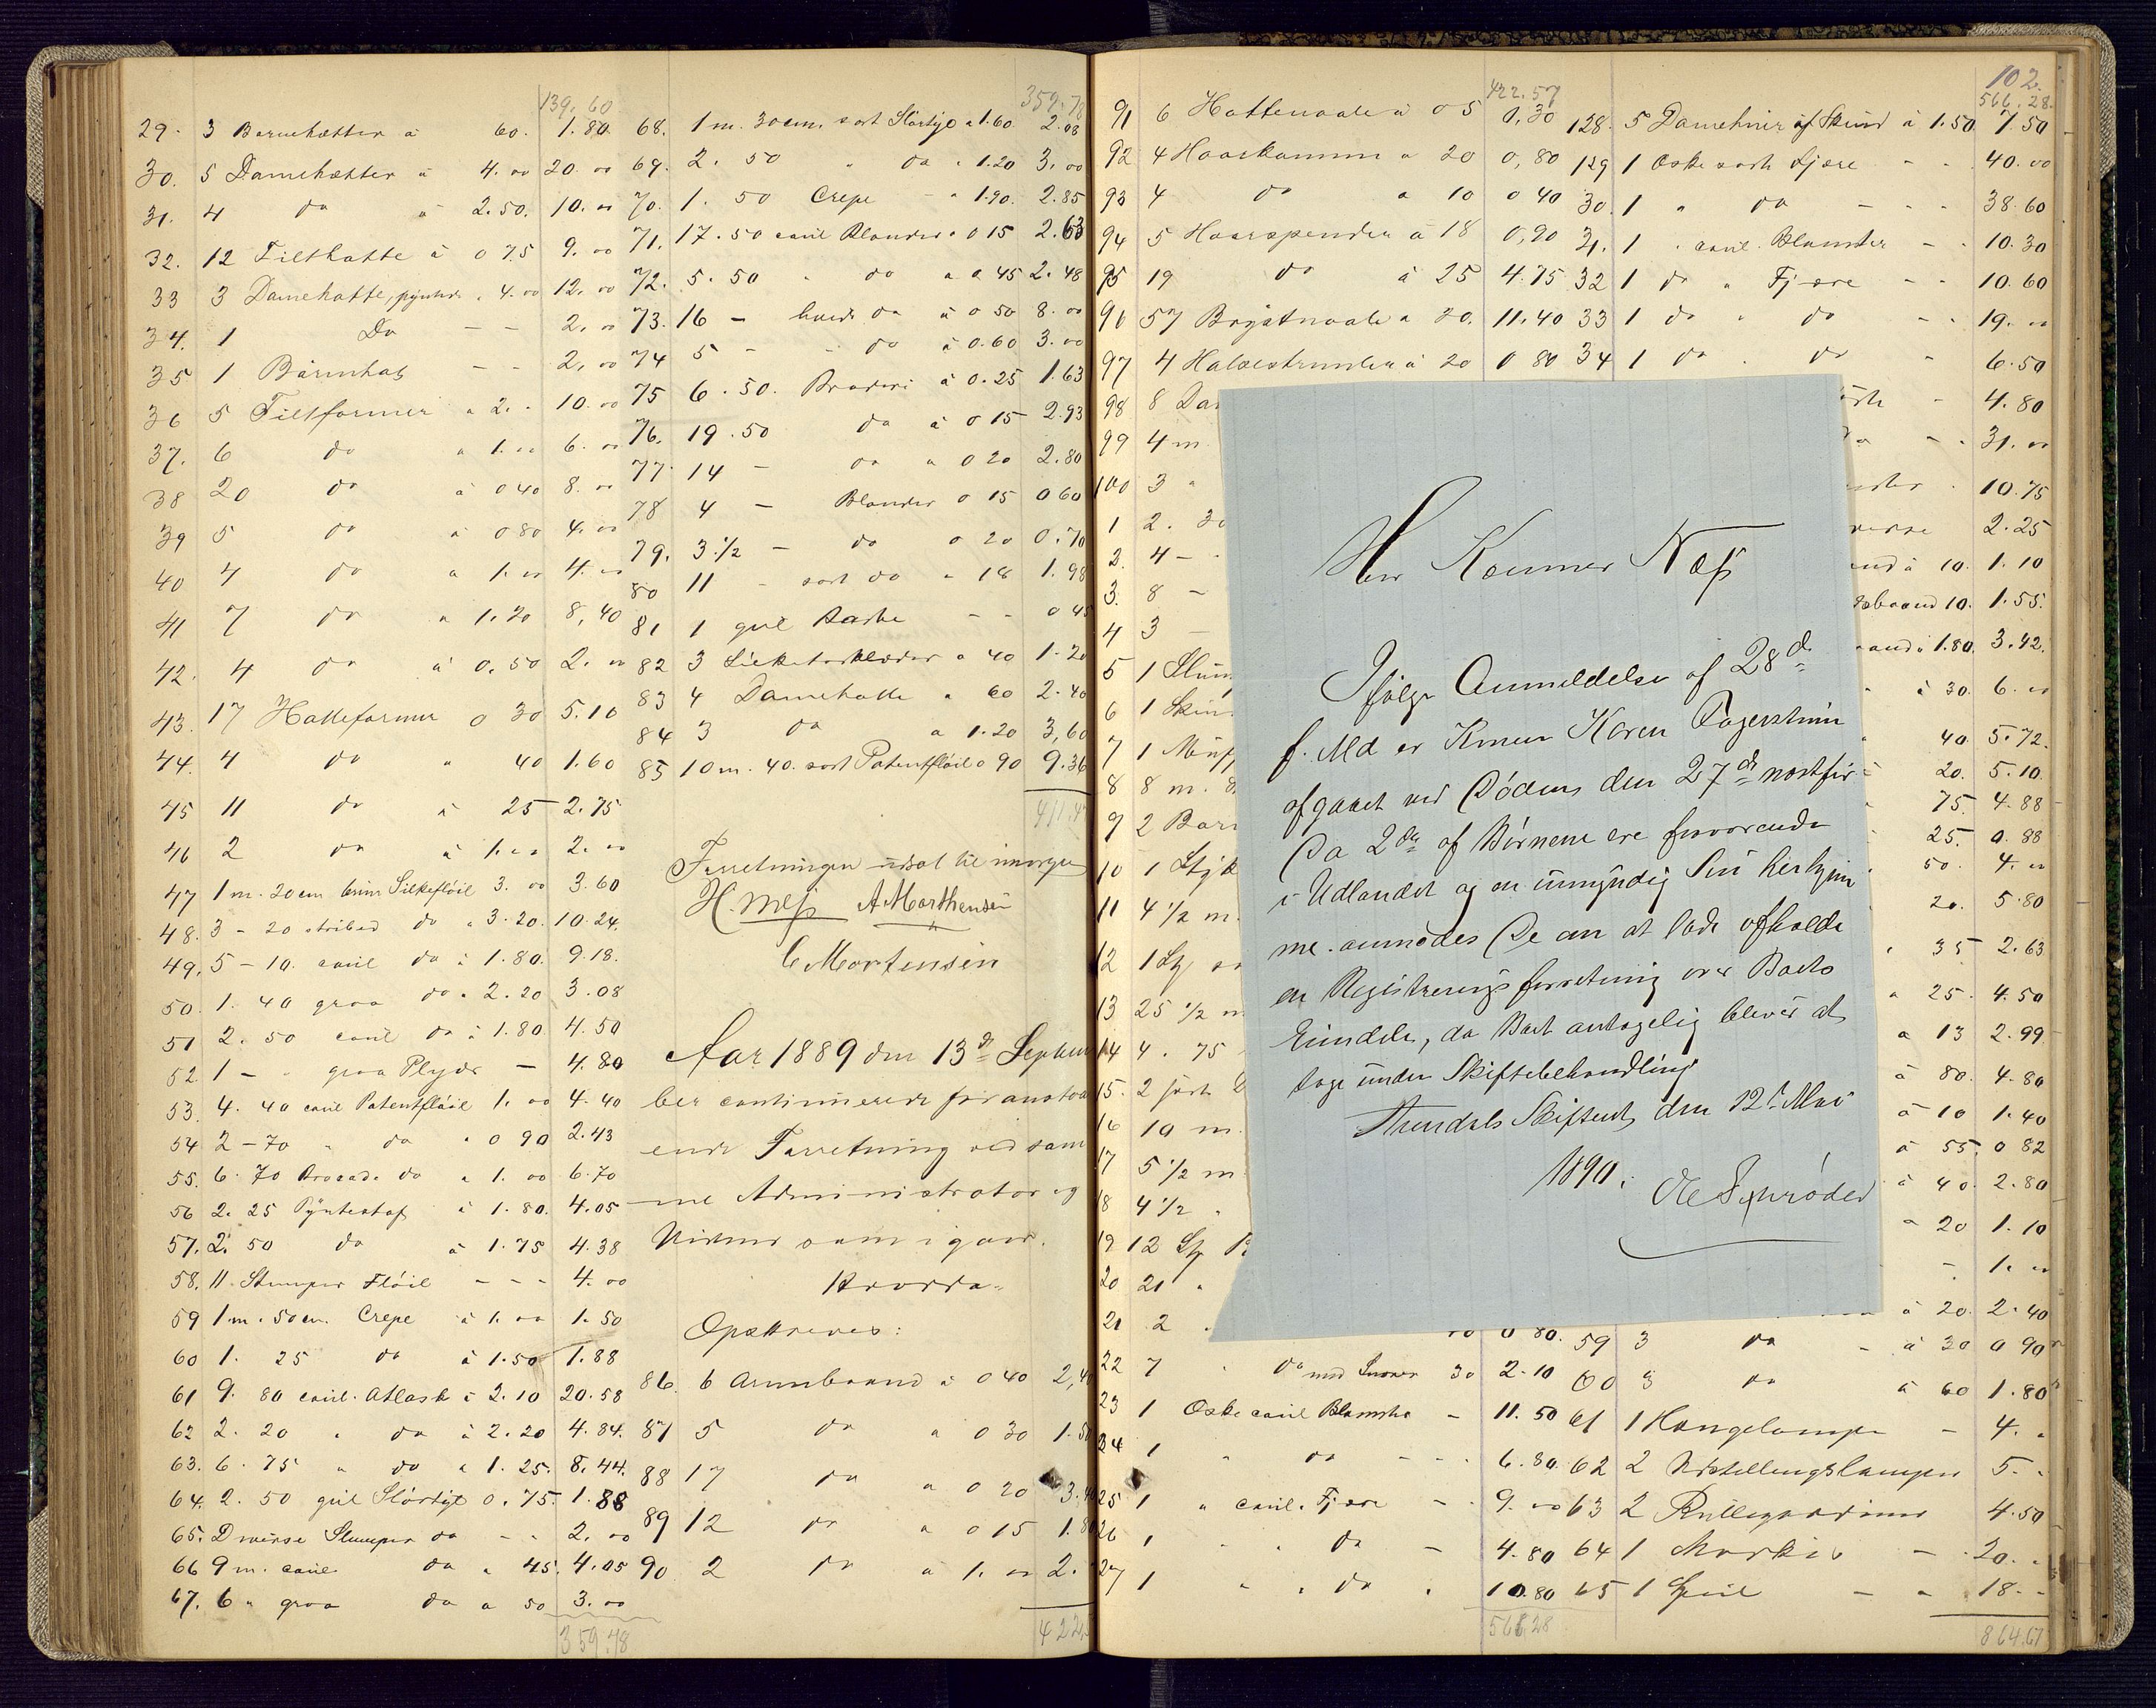 139.60
29. 3 Barnehætter à 60. 1.80.
30. 5 Damehætter à 4.00 20.00
31. 4 do à 2.50. 10.00
32. 12 Filthatte à 0 75 9.00
33 3 Damehatte, pyntede à 4.00 12.00
34. 1 Do - - 2.00
35 1 Barnehat - - 2.00
36 5 Filtformer à 2.00 10.00
37. 6 do à 1.00 6.00
38 20 do à 0 40 8.00
39 5 do à 0 80 4.00
40 4 do à 1.00 4.00
41 7 do à 1.20 8,40
42. 4 do à 0.50 2.00
43. 17 Hatteformer 0 30 5.10
44. 4 do " 40 1.60
45 11 do à 25 2.75
46 2 do à 1.00 2.00
47 1 m. 20 cm brun Silkefløil 3.00 3.60
48. 3 - 20 stribed do à 3.20. 10.24.
49. 5 - 10. coul do à 1.80. 9.18.
50. 1. 40 graa do à 2.20 3.08
51 2. 50 coul do à 1.80 4.50
52. 1 - graa Plyds - 4.80
53. 4. 40 coul Patentfløil 1.00 4.40
54 2 - 70 " do " 0 90 2.43
55. 6. 70 Brocade do à 1.00 6.70
56 2. 25 Pyntestof à 1.80. 4.05
57. 2. 50 do à 1.75 4.38
58. 11 Stumper Fløil - - - 4.00
59 1 m. 50 cm. Crepe à 1.00 1.50
60 1. 25 do à 1.50 1.88
61 9. 80 coul. Atlask à 2.10 20.58
62 2. 20 " do à 2.20 4.84.
63. 6. 75 " do à 1.25. 8.44.
64. 2. 50 gul Slørtyl 0.75. 1.88
65. Diverse Stumper do - - 2.00
66 9 m. coul. do à 45. 4.05
67. 6 " graa do à 50 3.00
359.78
359.78
68. 1 m. 30 cm. sort Slørtyl à 1.60 2.08
69. 2. 50 " do à 1.20 3.00
70. 1. 50 Crepe - à 1.90. 2.85
71. 17.50 coul Blonder à 0 15 2.63
72. 5.50 " do à 0 45 2.48
73. 16 - hvide do à 0 50 8.00
74 5 - - do à 0.60 3.00
75 6.50. Broderi à 0.25 1.63
76. 19.50 do à 0 15 2.93
77. 14 - do à 0 20 2.80
78 4 - Blonder 0 15 0 60
79. 3 1/2 - do 0 20 0.70
80 11 - sort do à 18 1.98
81 1 gul - - 0 45
82 3 Silketørklæder à 40 1.20
83 4 Damehatte à 60 2.40
84 3 do à 1.20 3,60
85 10 m. 40. sort Patentfløil à 90 9.36
411.47
Forretningen udsat til imorgen
H. Næss A. Marthensen
C. Mortensen
Aar 1889 den 13de Septem
ber continueredes foranstaa
ende Forretning ved sam
me Administrator og
Vidner som igaar.
Hvorda
Opskreves:
86. 6 Armbaand à 0 40 2,40
87 5 do à 0 30 1.50
88 17 do à 0 20 3.40
89 12 do à 0 15 1.80
90 2 do à 1.00 2.
422.
102.
422.57
91 6 Hattenaale à 0 5 0,30
92 4 Haarkamme à 20 0,80
93 4 do à 10 0 40
94 5 Haarspender à 18 0,90
95 19 do à 25 4.75
96 57 Brystnaale à 20. 11.40
97 4 à 20 0 80
98 8 Da
99 4 m
100 3 "
1 2. 30
2. 4 -
3. 8 -
4 3 -
5 1
6 1 Skin
7 1 Muff
8 8 m.
9 2 Bar
10 1 Styk
11 4 1/2 m.
12 1 St
13 25 1/2 m
14 4. 75
15. 2
16 10 m.
17 5 1/2 m
18 4 1/2 "
19 12 St
20 21 "
21 2 0 80.
22 7 " do med Snorer 30 2.10
23 1 Æske coul Blomster - 11.50
24 1 " do - - - 6.80
25 1 " coul. Fjære - - 9.00
26 1 " " do - 4.80
27 1 " " do " 10.80
566,28
566.28.
128. 5 Damehuer af Skind à 1.50 7.50
129 1 Æske sorte Fjære - - 40.00
30. 1 " do - - - 38.60
31. 1 " coul. Blomster - - 10.30
32 1 do " Fjære - - 10.60
33 1 do " do - - 19.00
34 1 do " do " 6.50
4.80
31.00
10.75
2.25
à 10. 1.10
baand 10. 1.55.
à 1.80. 3.42.
à 30. 6.00
40. 5.72.
20. 5.10.
75. 4.88
25. 0.88
50. 4.00
20. 5.80
35 2.63
à 25. 4.50
à 13 2.99
à 80. 4.80
à 10 1.40
à 55. 0 82
à 40. 2.80
à 20 1.10
- 1.00
à 20. 2.40
59 3 do - à 30 0 90
60 3 do à 60 1.80
61 1 Hængelampe - 4.
62 2 Udstillingslamper 5.
63 2 Rullegardiner 4.50
64 1 Markise - 20.
65 1 Speil - - 18.
864.67
Herr Kæmner Næss
Ifølge Anmeldelse af 28de
f. Md er Konen Karen Fagerstrøm
afgaaet ved Døden den 27de næstfør
Da 2de af Børnene ere fraværende
i Udlandet og en umyndig Søn herhjem
me. anmodes De om at lade afholde
en Registreringsforretning over Boets
Eiendele, da Boet antagelig bliver at
tage under Skiftebehandling
Arendals Skifteret, den 12te Mai
1890.
Ole Schrøder